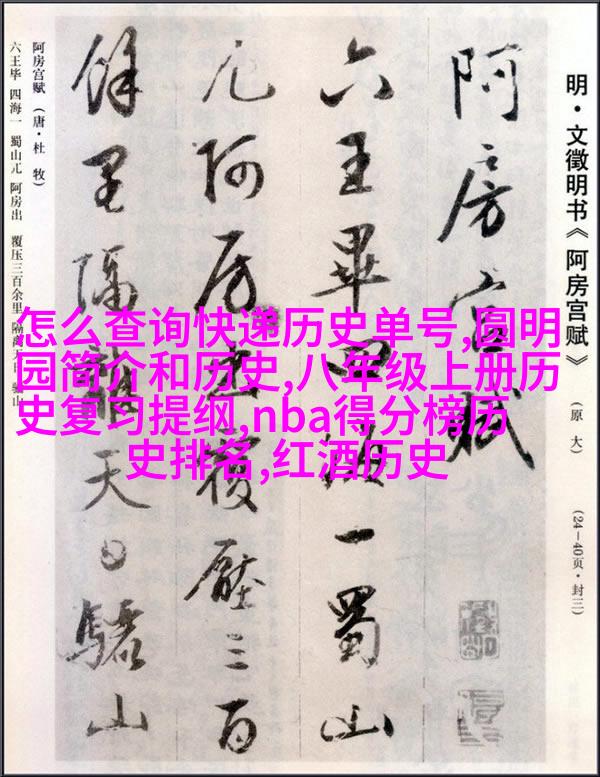 明·文徵明书《阿房宫赋》
（原大）
（24—40页·封三）
阿房宮赋
六王畢四海一蜀山
兀阿房出覆壓三百
餘里隔離天日驪山
阿房宫赋（唐·杜 牧）
六王毕 四海一 蜀山兀 阿房出 覆压三百余里 隔离天日 骊山
怎么查询快递历史单号,圆明
园简介和历史,八年级上册历
史复习提纲,nba得分榜历
史排名,红酒历史